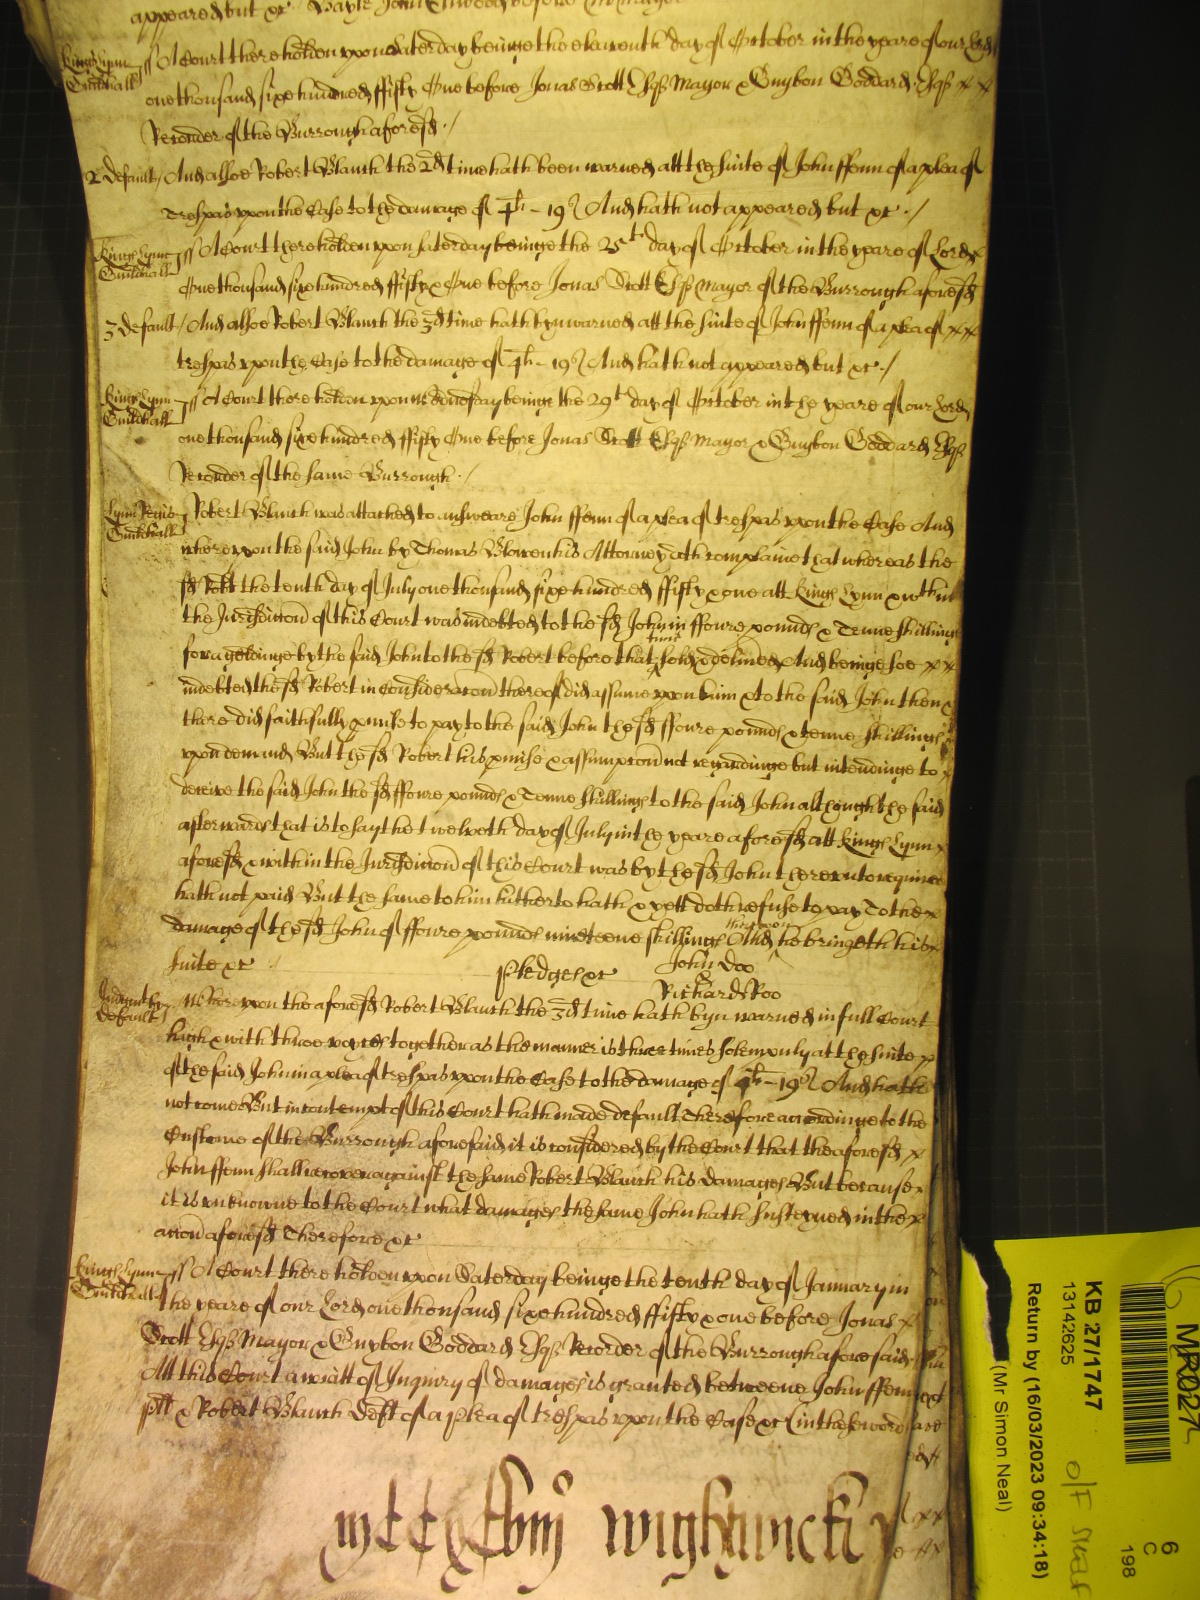 appeared but &c
Kings Lynn
Guildhall
ss A Court there holden upon Saterday beinge the eleaventh day of October in the yeare of our Lord
one thousand sixe hundred ffifty One before Jonas Scott Esqr Mayor & Guybon Goddard Esqr x x
Recorder of the Burrough aforesd ./
2 default / And alsoe Robert Blanch the 2d time hath been warned att the suite of John ffenn of a plea of
Trespas upon the Case to the damage of 4li - 19s And hath not appeared but &c ./
Kings Lynn
Guildhall
ss A Court there holden upon Saterday beinge the 25t day of October in the yeare of Lord x
One thousand sixe hundred ffifty & One before Jonas Scott Esqr Mayor of the Burrough aforesd
3 default / And alsoe Robert Blanch the 3d time hath byn warned att the suite of John ffenn of a plea of x x
trespas upon the Case to the damage of 4li - 19s And hath not appeared but &c ./
Kings Lynn
Guildhall
ss A Court there holden upon Wednesday beinge the 29t day of October in the yeare of our Lord
one thousand sixe hundered ffifty One before Jonas Scott Esqr Mayor & Guybon Goddard Esqr
Recorder of the same Burrough ./
Lynn Regis
Guildhall
Robert Blanch was attached to answeare John ffenn of a plea of trespas upon the Case And
whereupon the said John by Thomas Blowen his Attorney doth complaine that whereas the
sd Robt the tenth day of July one thousand sixe hundred ffifty & one att Kings Lynn & within
the Jurisdiccon of this Court was indebted to the sd John in ffoure pounds & Tenne shillings
for a geldinge by the said John to the sd Robert before that time sold & delived And beinge soe x x
indebted the sd Robert in Consideracon thereof did assume upon him & to the said John then &
there did faithfully pmise to pay to the said John the sd ffoure pounds & tenne shillings
upon demand But the sd Robert his pmise & assumpcon not regardinge but intendinge to x
deceive the said John the sd ffoure pounds & Tenne shillings to the said John although the said
afterwards that is to say the twelveth day of July in the yeare aforesd att Kings Lynn x
aforesd & within the Jurisdiccon of this Court was by the sd John thereunto required
hath not paid But the same to him hitherto hath & yett doth refuse to pay To the x
damage of the sd John of ffoure pounds nineteene shillings And thereupon he bringeth his x
suite &c
Pledges &c
John Doo
&
Richard Roo
Judgmt by
default
Whereupon the aforesd Robert Blanch the 3d time hath byn warned in full Court
high & with three voyces together as the manner is three times solempnly at the suite x
of the said John in a plea of trespas upon the Case to the damage of 4li - 19s And hath
not come But in contempt of this Court hath made default Therefore accordinge to the
Custome of the Burrough aforesaid it is considered by the Court that the aforesd x
John ffenn shall recover against the same Robert Blanch his damages But because x
it is unknowne to the Court what damages the same John hath susteyned in the x
accon aforesd Therefore &c
Kings Lynn
Guildhall
ss A Court there holden upon Saterday beinge the tenth day of January in
the yeare of our Lord one thousand sixe hundred ffifty & one before Jonas x
Scott Esqr Mayor & Guybon Goddard Esqr Recorder of the Burrough aforesaid
Att this Court a writt of Inquiry of damages is granted betweene John ffenn
plt & Robert Blanch Deft of a plea of trespas upon the Case &c (in these words
wightwick
MR0027
6
C
198
KB 27/1747
13142625
Return by (16/03/2023 09:34:18)
(Mr Simon Neal)